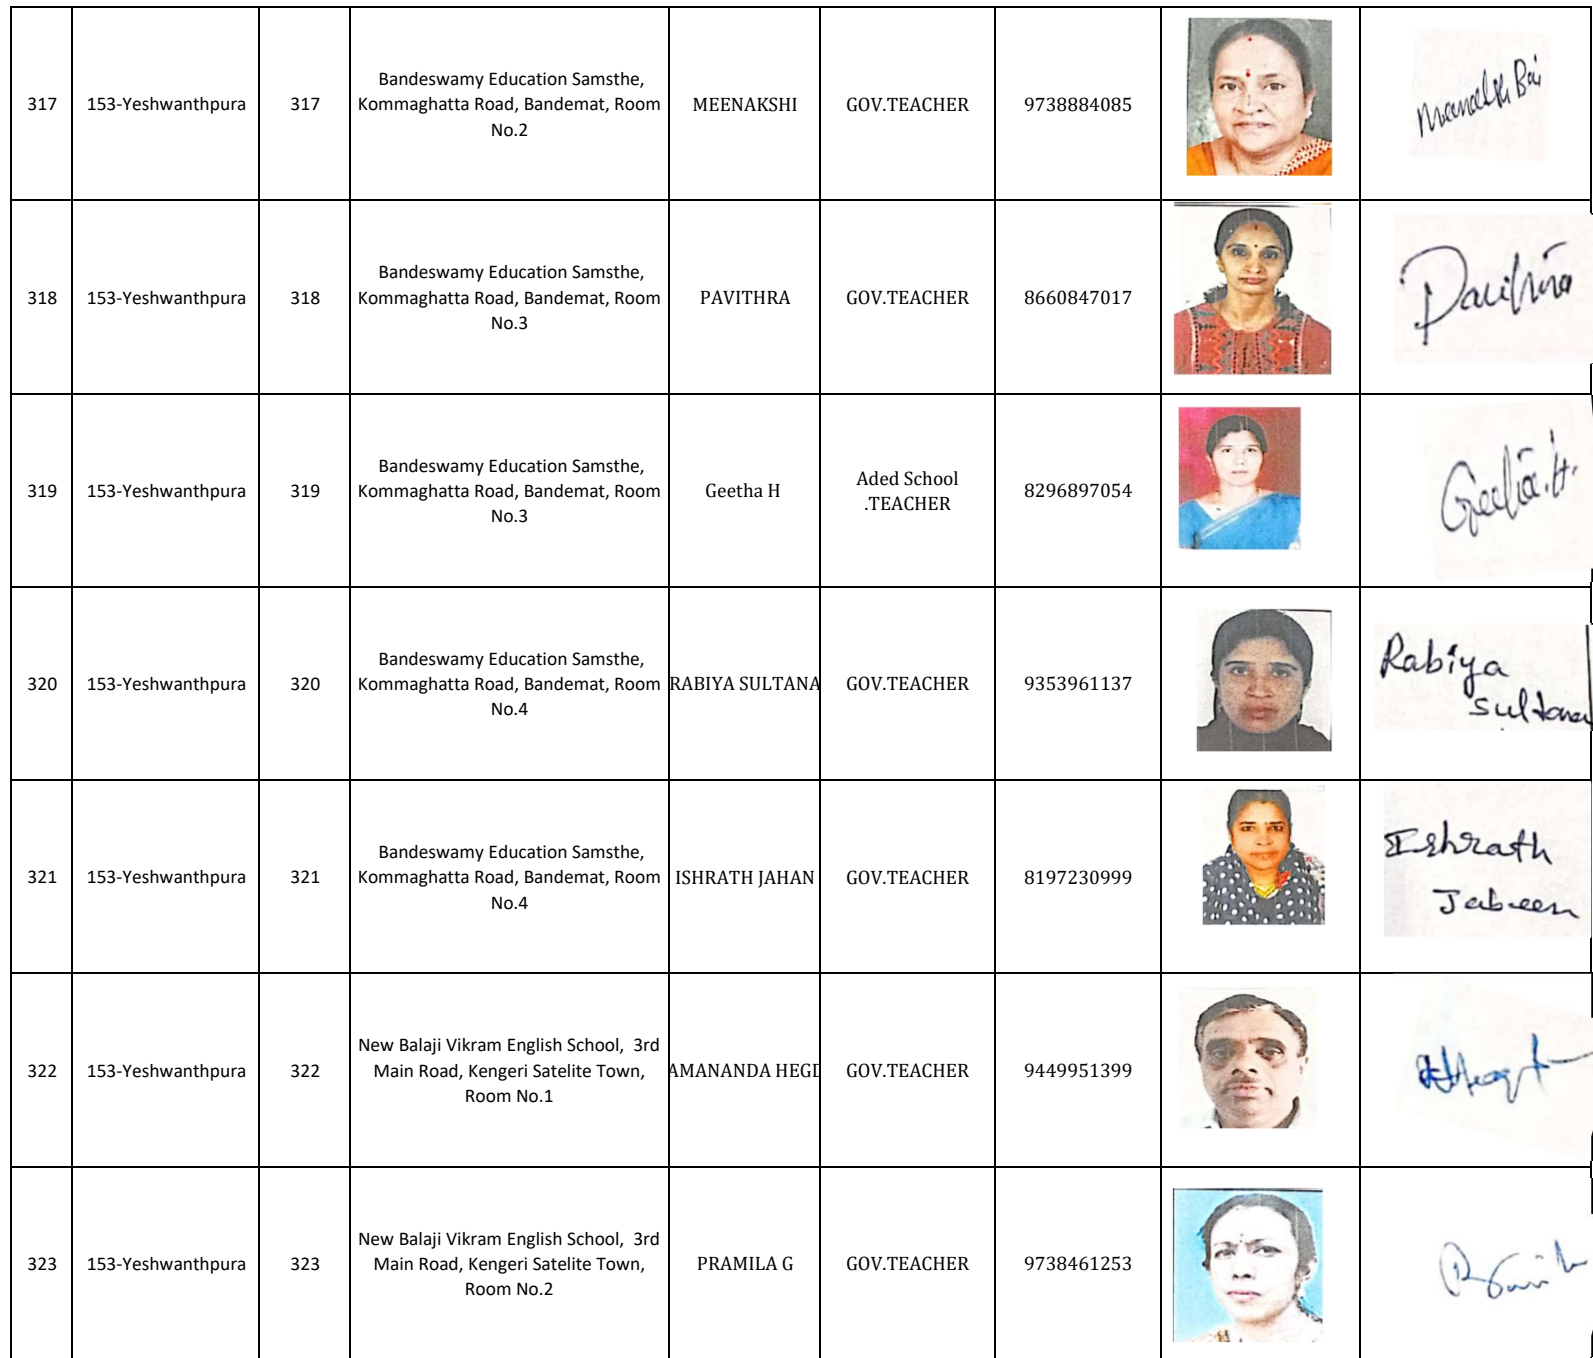 317 153-Yeshwanthpura 317 Bandeswamy Education Samsthe, Kommaghatta Road, Bandemat, Room No.2 MEENAKSHI GOV.TEACHER 9738884085
318 153-Yeshwanthpura 318 Bandeswamy Education Samsthe, Kommaghatta Road, Bandemat, Room No.3 PAVITHRA GOV.TEACHER 8660847017 Pavithra
319 153-Yeshwanthpura 319 Bandeswamy Education Samsthe, Kommaghatta Road, Bandemat, Room No.3 Geetha H Aded School .TEACHER 8296897054 Geetha.H.
320 153-Yeshwanthpura 320 Bandeswamy Education Samsthe, Kommaghatta Road, Bandemat, Room No.4 RABIYA SULTANA GOV.TEACHER 9353961137 Rabiya Sultana
321 153-Yeshwanthpura 321 Bandeswamy Education Samsthe, Kommaghatta Road, Bandemat, Room No.4 ISHRATH JAHAN GOV.TEACHER 8197230999 Ishrath Jabeen
322 153-Yeshwanthpura 322 New Balaji Vikram English School, 3rd Main Road, Kengeri Satelite Town, Room No.1 AMANANDA HEGD GOV.TEACHER 9449951399
323 153-Yeshwanthpura 323 New Balaji Vikram English School, 3rd Main Road, Kengeri Satelite Town, Room No.2 PRAMILA G GOV.TEACHER 9738461253